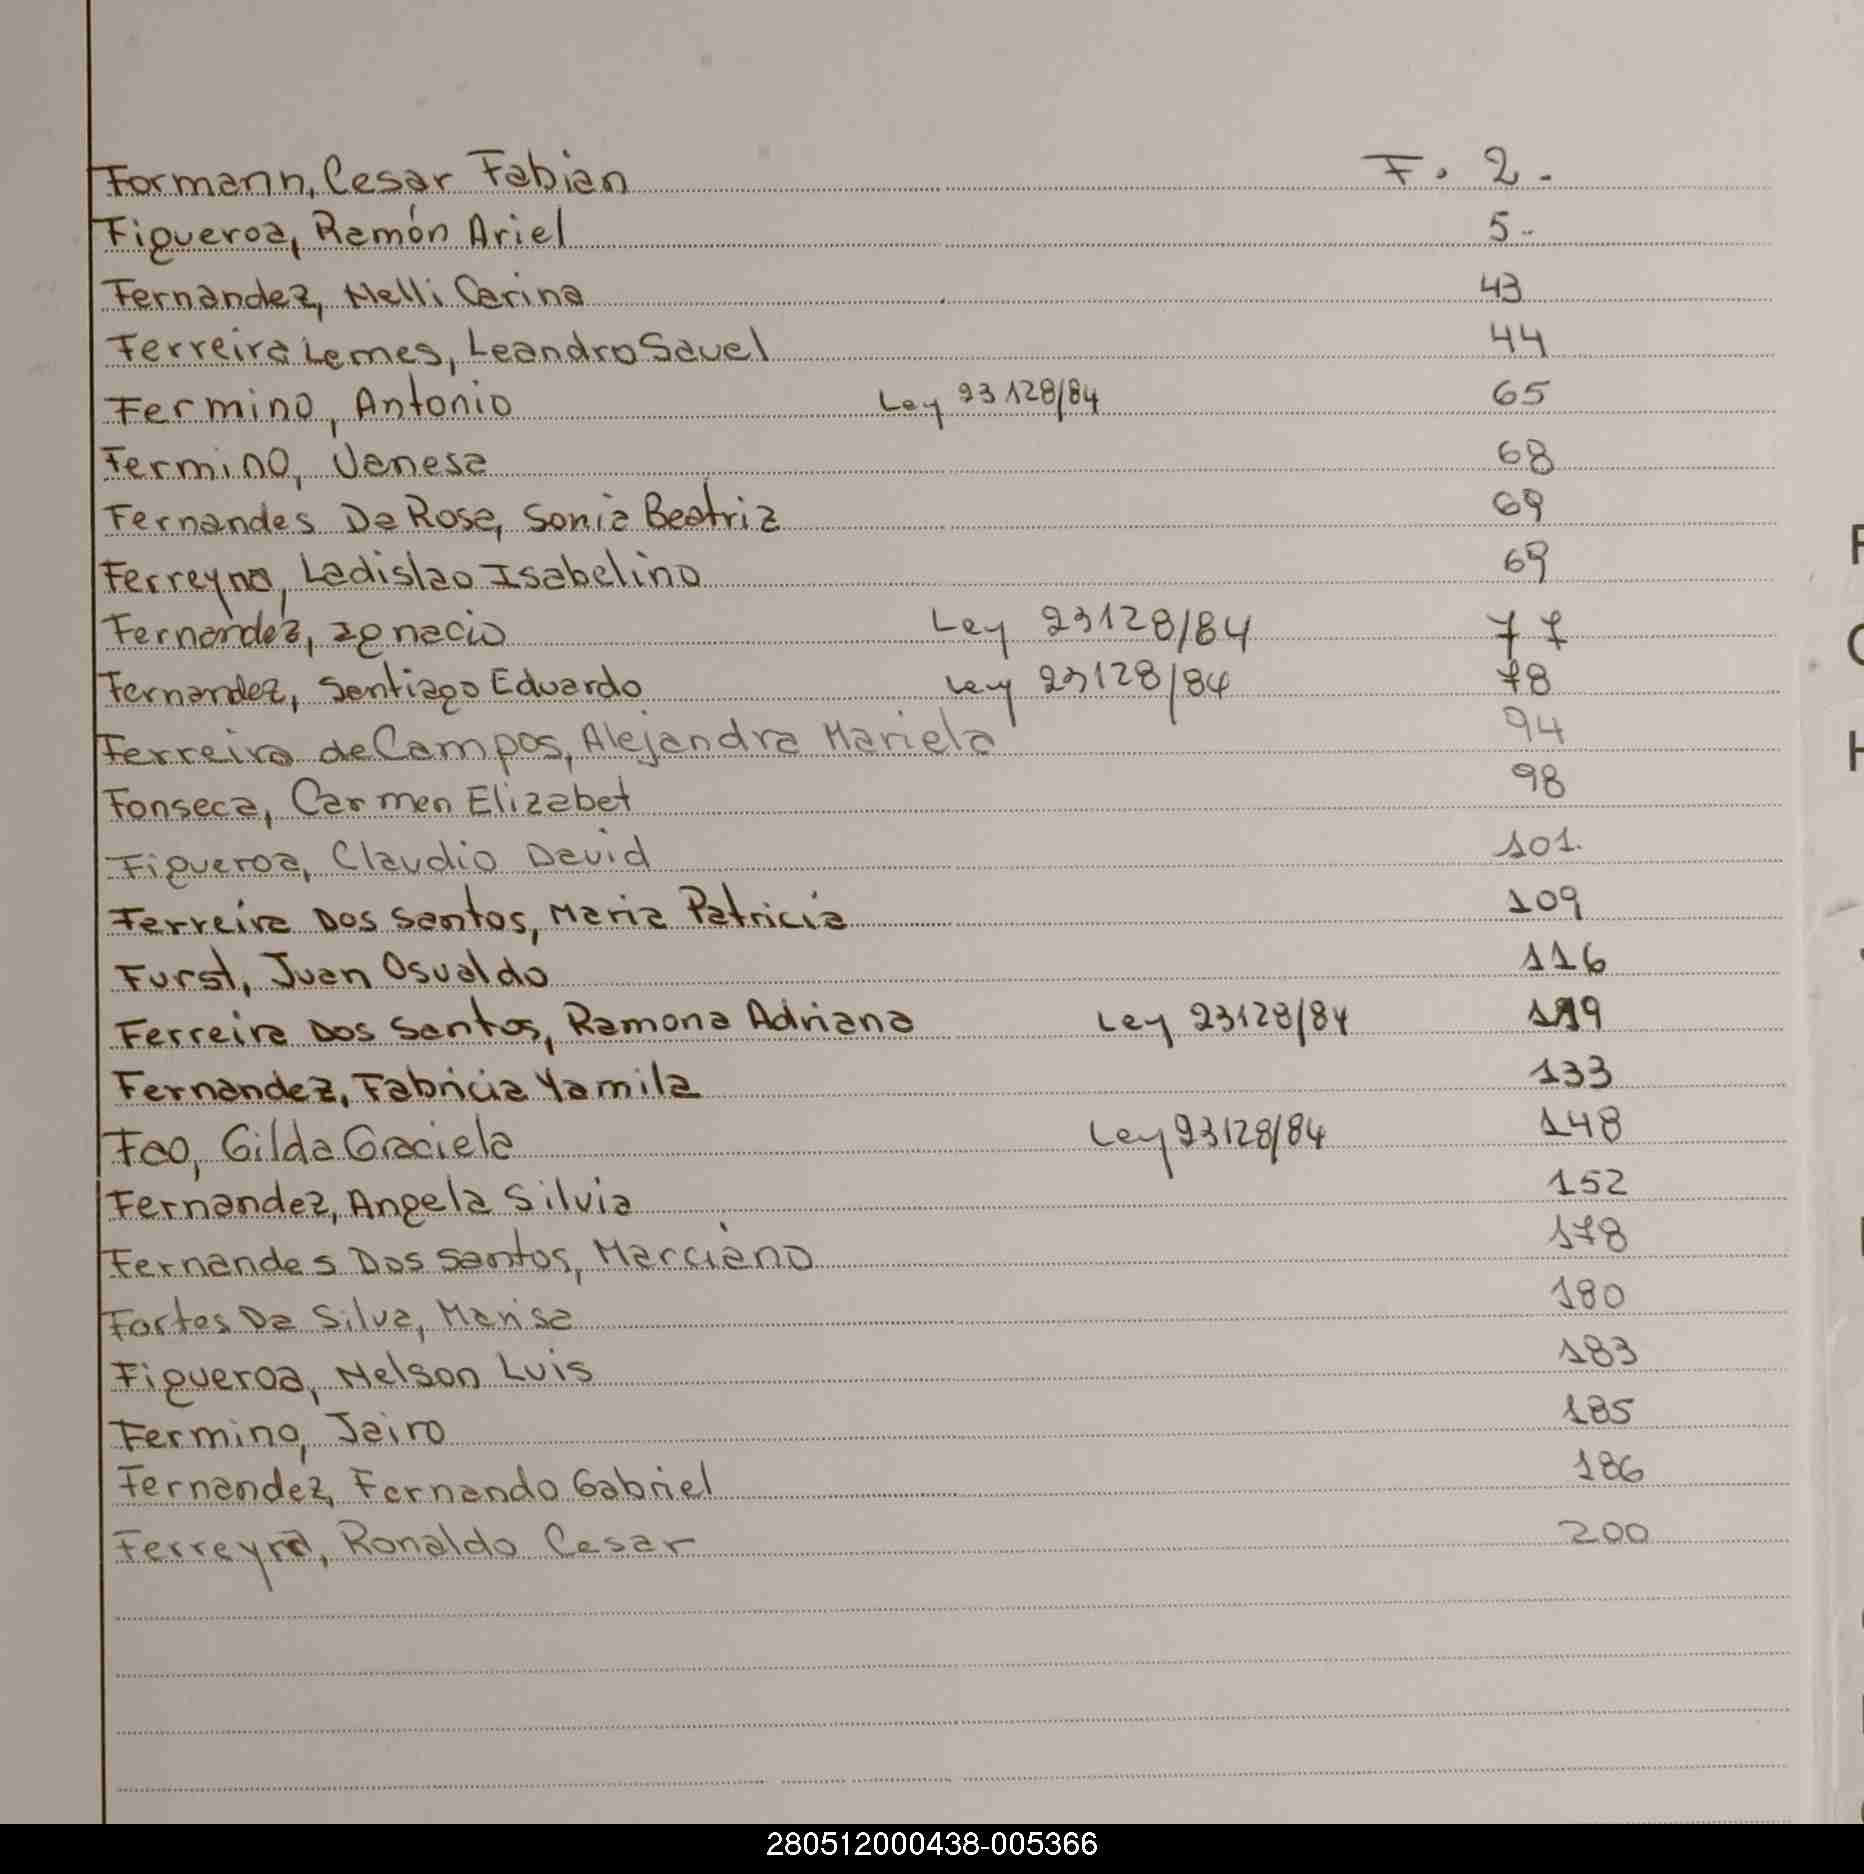 Formann, Cesar Fabian F. 2.
Figueroa, Ramón Ariel 5-
Fernandez, Nelli Carina 43
Ferreira Lemes, Leandro Sauel 44
Fermino, Antonio Ley 23128/84 65
Fermino, Vanesa 68
Fernandes Da Rosa, Sonia Beatriz 69
Ferreyra, Ladislao Isabelino 69
Fernandez, Ignacio Ley 23128/84 77
Fernandez, Santiago Eduardo Ley 23128/84 78
Ferreira de Campos, Alejandra Mariela 94
Fonseca, Carmen Elizabet 98
Figueroa, Claudio David 101.
Ferreira Dos Santos, Maria Patricia 109
Furst, Juan Osvaldo 116
Ferreira Dos Santos, Ramona Adriana Ley 23128/84 119
Fernandez, Fabricia Yamila 133
Fao, Gilda Graciela Ley 23128/84 148
Fernandez, Angela Silvia 152
Fernandes Dos Santos, Marciano 178
Fortes Da Silva, Marisa 180
Figueroa, Nelson Luis 183
Fermino, Jairo 185
Fernandez, Fernando Gabriel 186
Ferreyra, Ronaldo Cesar 200
280512000438-005366